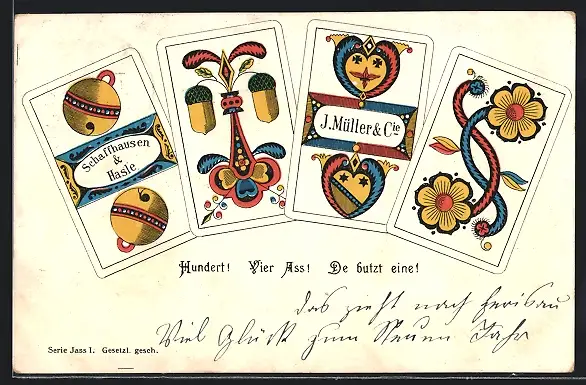 Schaffhausen
&
Hasle
J. Müller & Cie
Hundert! Vier Ass! De butzt eine!
das zieht nach Herisau
Viel Glück zum Neuen Jahr
Serie Jass 1. Gesetzl. gesch.